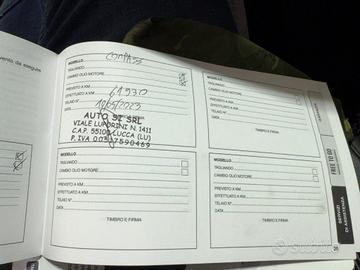 vento da eseguire
MODELLO compass
TAGLIANDO
CAMBIO OLIO MOTORE
PREVISTO A KM
ESEGUITO A KM 61930
TELAIO N°
DATA 10/05/2023
TIMBRO E FIRMA
AUTO SI SRL
VIALE LUPORINI N. 1411
C.A.P. 55100 LUCCA (LU)
P. IVA
MODELLO
TAGLIANDO
CAMBIO OLIO MOTORE
PREVISTO A KM
ESEGUITO A KM
TELAIO N°
DATA
TIMBRO E FIRMA
MODELLO
TAGLIANDO
CAMBIO OLIO MOTORE
PREVISTO A KM
ESEGUITO A KM
TELAIO N°
DATA
TIMBRO E FIRMA
MODELLO
TAGLIANDO
CAMBIO OLIO MOTORE
PREVISTO A KM
ESEGUITO A KM
TELAIO N°
DATA
TIMBRO E FIRMA
FREE TO GO
SERVIZI
DI ASSISTENZA
subito